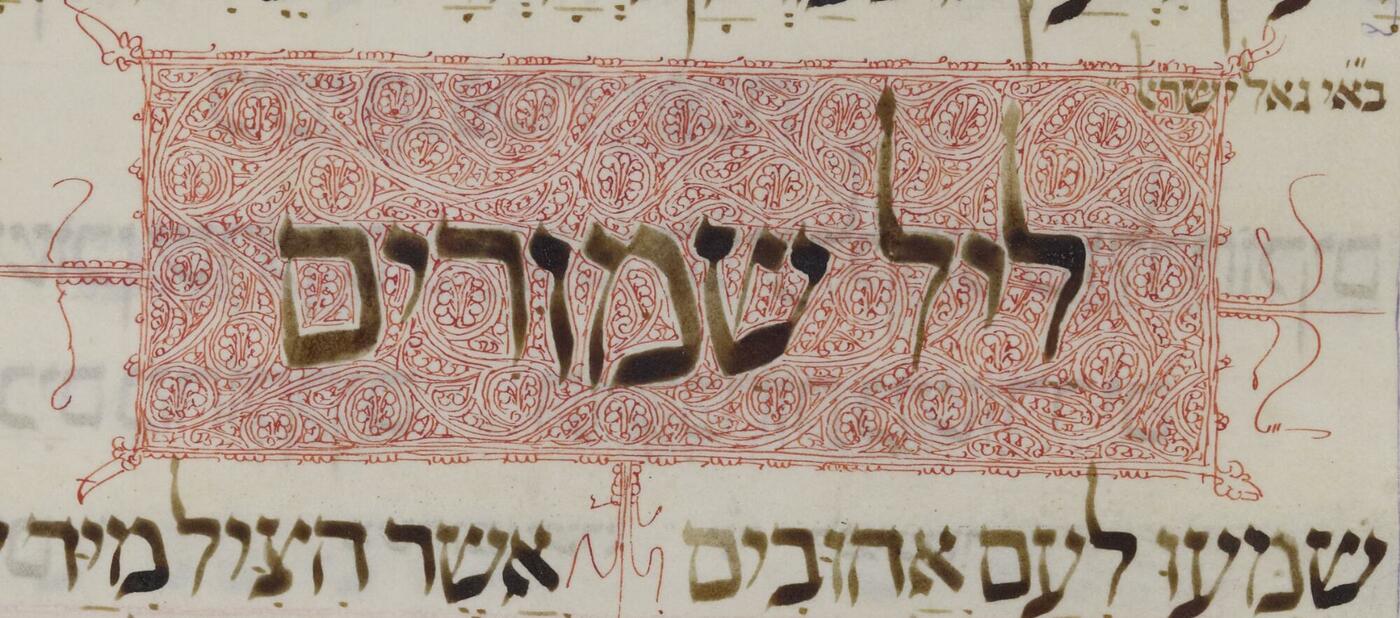 בא״י גאל ישראל
ליל שמורים
שמעו לעם אהובים אשר הציל מיד